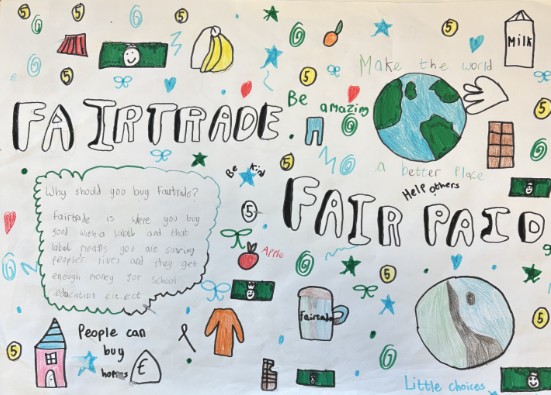 Milk
Make the world
Be amazing
FAIRTRADE
a better place
Be kind
Help others
Why should you buy Fairtrade?
Fairtrade is were you buy
label means you are saving
people's lives and they get
enough money for school
5
FAIR PAID
Apple
Fairtrade
People can
buy
homes
£
Little choices